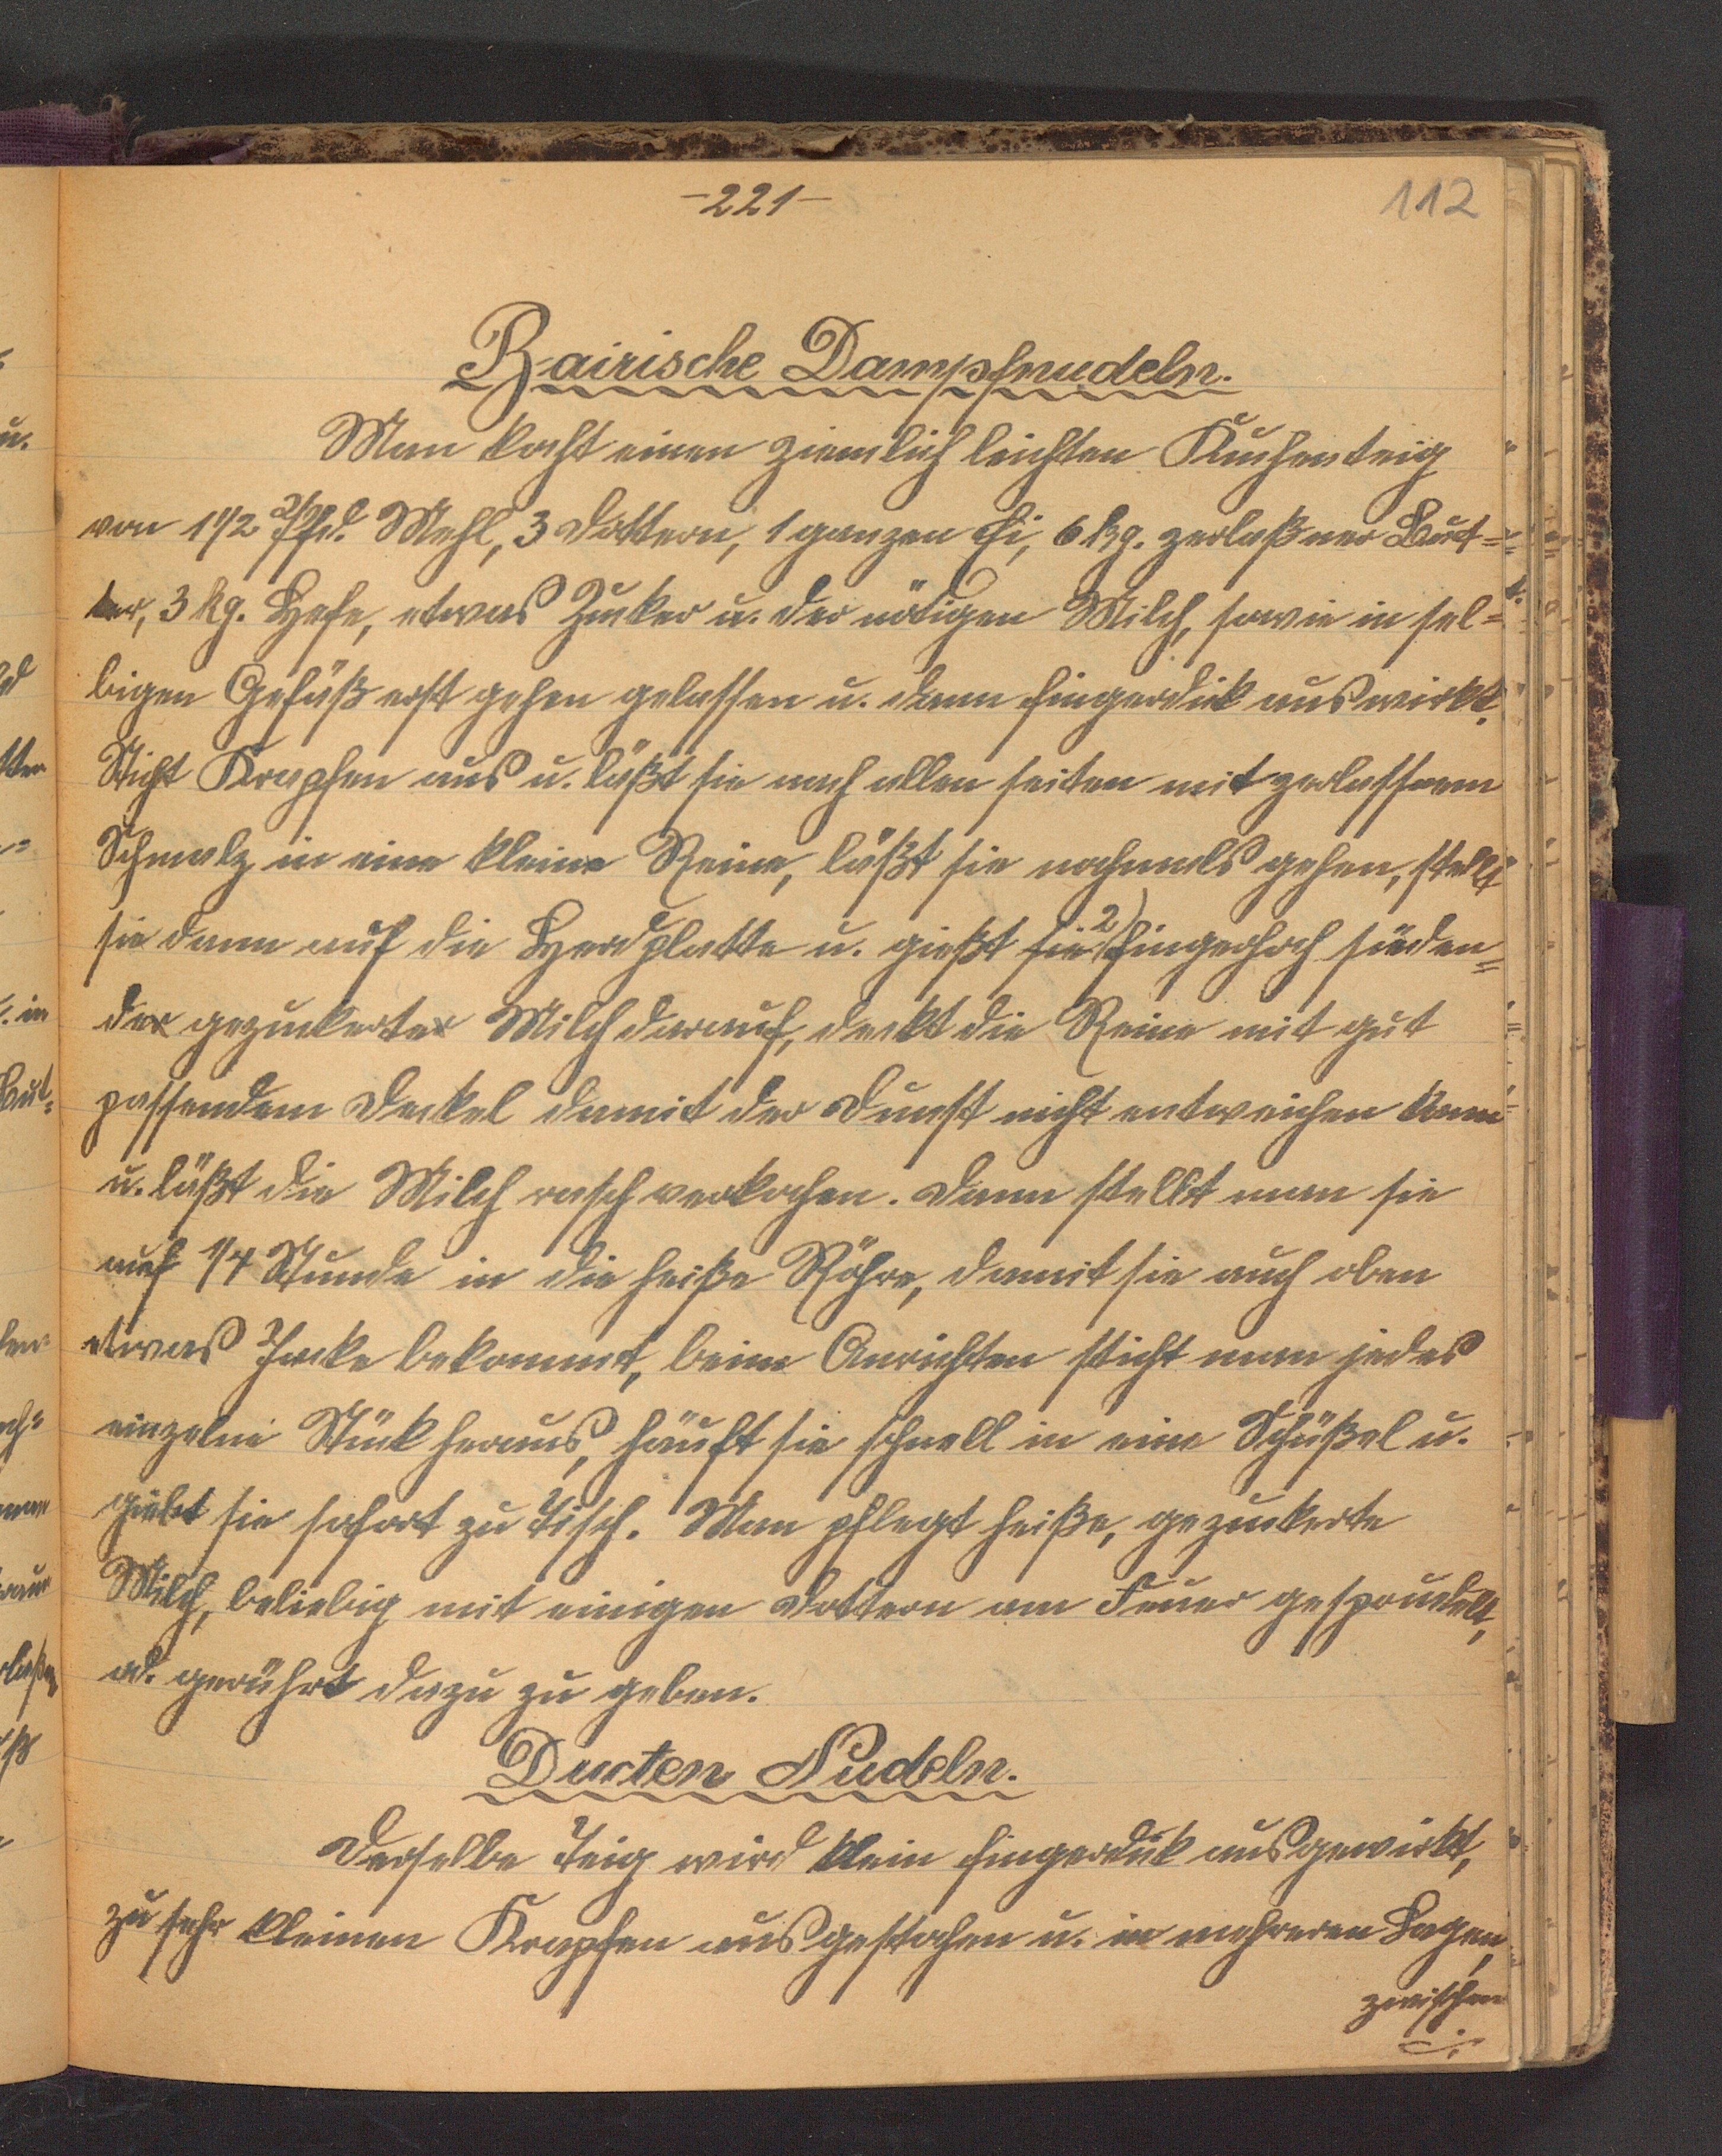 -221-
112
Bairische Dampfnudeln.
Man kocht einen ziemlich leichten Kuchenteig
von 1 1/2 Pfd. Mehl, 3 Dottern, 1 ganzen Ei, 6 kg. zerlaßner But=
ter, 3 kg. Hefe, etwas Zucker u. der nötigen Milch, sowie in sel=
bigen Gefäß erst gehen gelassen u. dann fingerdick auswirkt.
Sticht Krapfen aus u. läßt sie nach allen seiten mit zerlassnem
Schmalz in eine kleine Reine, läßt sie nochmals gehen, stellt
sie dann auf die Herdplatte u. gießt sie 2) fingerhoch sieden=
der gezuckerter Milch darauf, deckt die Reine mit gut
passendem Deckel damit der Dunst nicht entweichen kann
u. läßt die Milch rasch verkochen. Dann stellt man sie
auf 1/4 Stunde in die heiße Röhre, damit sie auch oben
etwas Farbe bekommt, beim Anrichten sticht man jedes
einzelne Stück heraus, häuft sie schnell in eine Schüßel u.
giebt sie sofort zu Tisch. Man pflegt heiße, gezuckerte
Milch, beliebig mit einigen Dottern am Feuer gesprudelt,
od. gerührt dazu zu geben.
Ducten Nudeln.
Derselbe Teig wird klein fingerdick ausgewirkt,
zu sehr kleinen Krapfen ausgestochen u. in mehreren Lagen,
zwischen